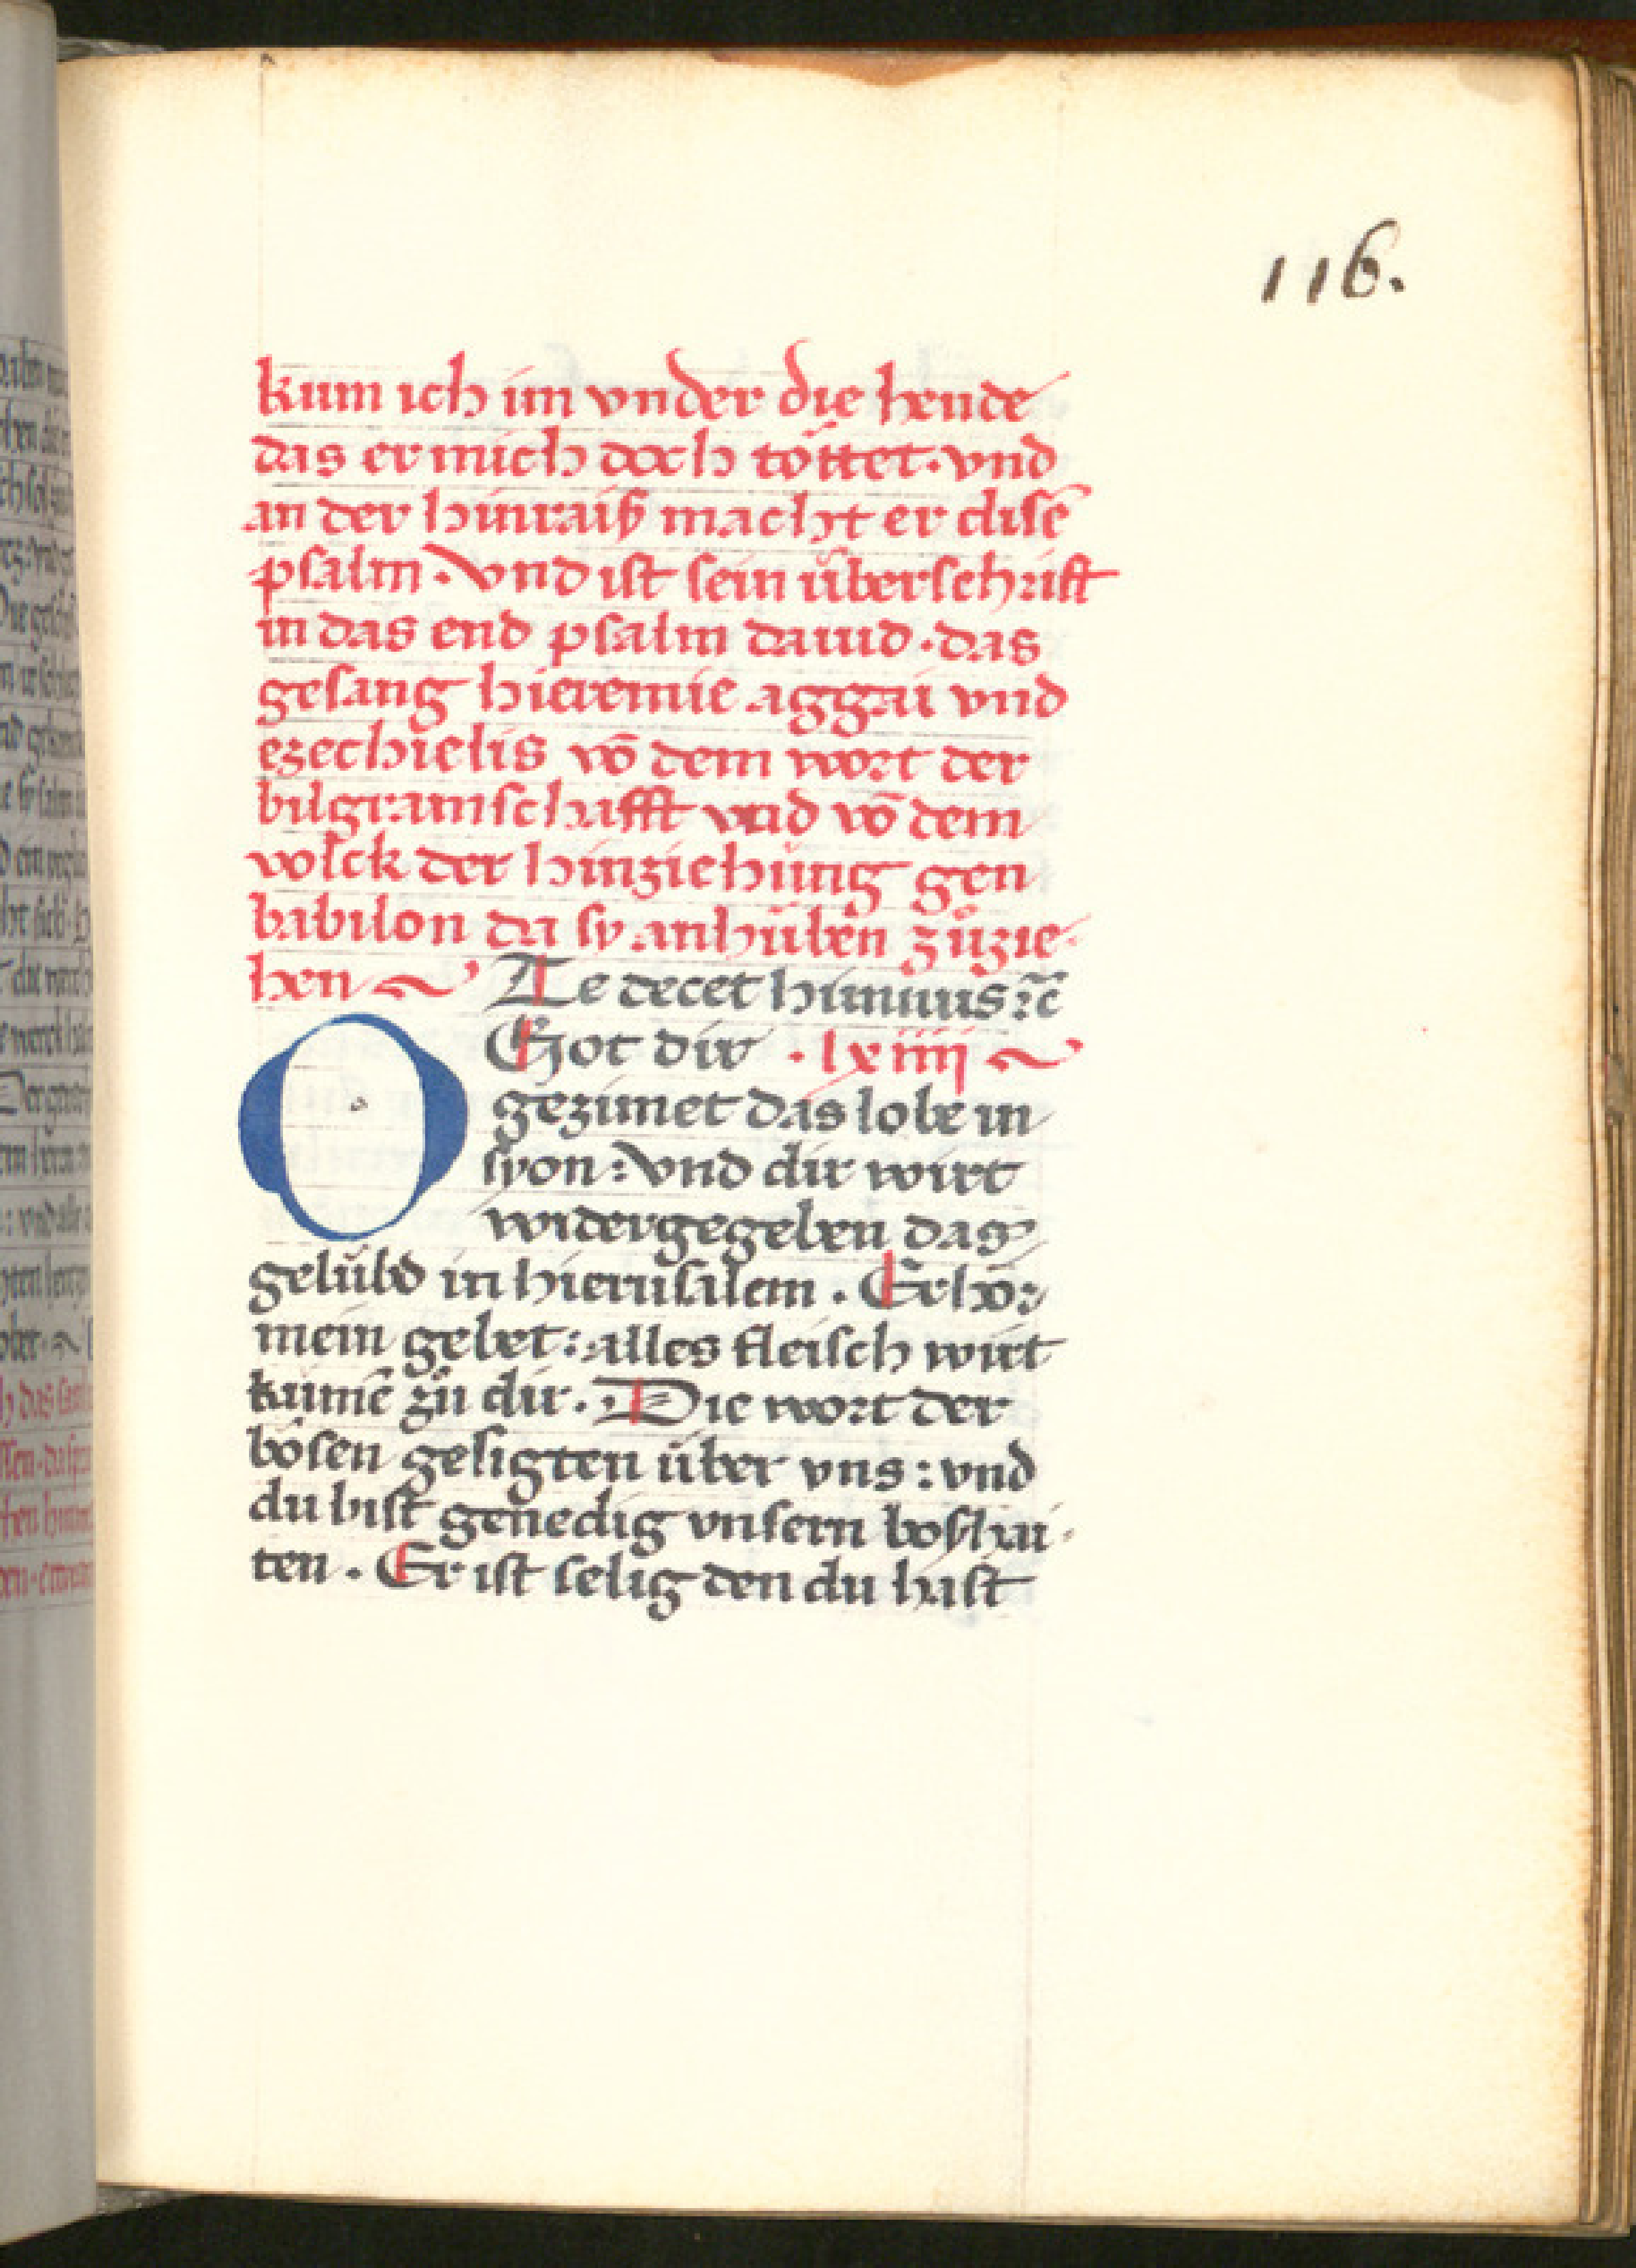 116.
kum ich im vnder die hende
das er mich doch töttet · vnd
an der hinraiß macht er disē
psalm · Vnd ist sein überschrift
in das end psalm dauid · das
gesang hieremie aggai vnd
ezechielis vō dem wort der
bilgramschafft vnd vō dem
volck der hinziehung gen
babilon da sy anhůben zůzie-
hen Te decet himnus ꝛc̄
O Got dir · lxiiij
gezimet das lobe in
syon : Vnd dir wirt
widergegeben das
gelübd in hierusalem . Erhör
mein gebet : alles fleisch wirt
kumē zů dir . Die wort der
bösen gesigten über vns : vnd
du bist genedig vnsern boßhai-
ten . Er ist selig den du hast